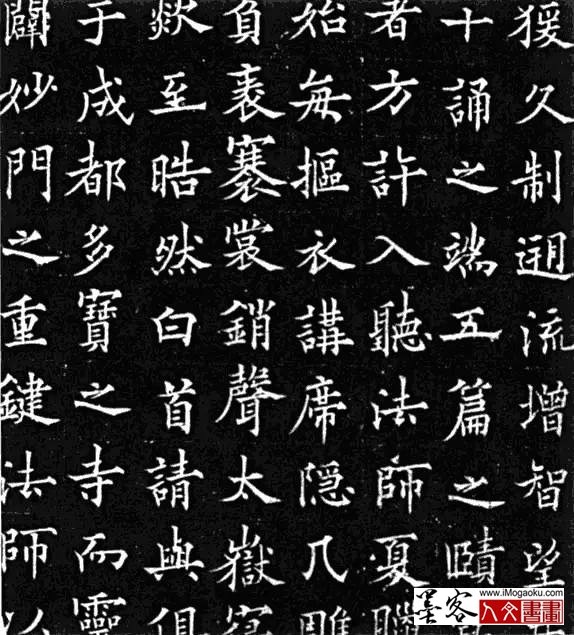 猨久制遡流增智望
十誦之端五篇之賾
者方許入聽法師夏臘
始每摳衣講席隱几雕
負袠褰裳銷聲太嶽
歘至晧然白首請與俱
于成都多寶之寺而靈
闢妙門之重鍵法師以
墨客
www.iMogaoku.com
人文書畫